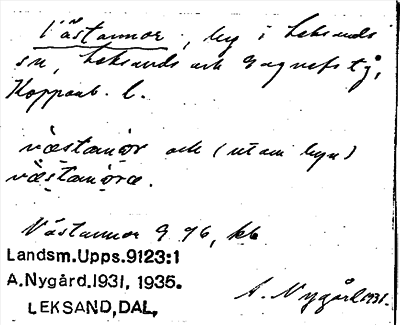 Västannor, by i Leksands
sn, Leksands och Gagnefs tg,
Kopparb. l.
västanòr och (utom byn)
västanòra.
Västannor 9 76, kb
Landsm.Upps.9123:1
A.Nygård.1931, 1935.
LEKSAND,DAL,
A. Nygård 1931.